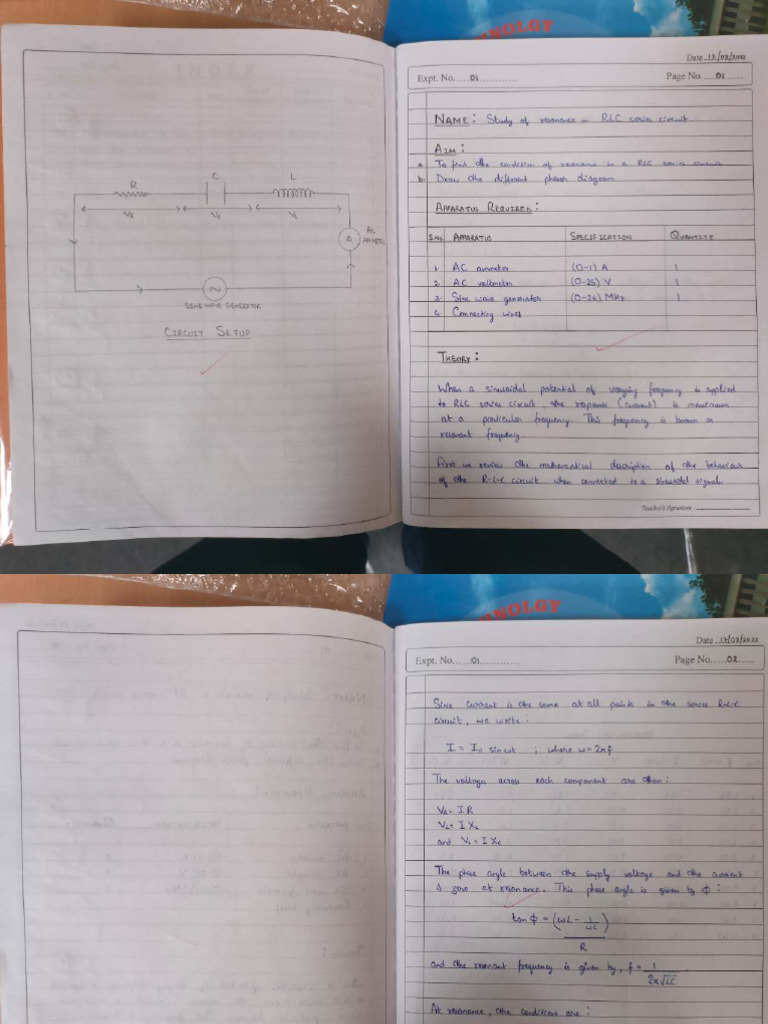 NOLGY
Date 17/03/2022
Expt. No. 01
Page No. 01
NAME: Study of resonance in RLC series circuit.
AIM:
a. To find the condition of resonance in a RLC series circuit
b. Draw the different phasor diagram
APPARATUS REQUIRED:
S.No. APPARATUS SPECIFICATIONS QUANTITY
1. AC ammeter (0-1) A 1
2. AC voltmeter (0-25) V 1
3. Sine wave generator MHz 1
4. Connecting wires
THEORY:
When a sinusoidal potential of varying frequency is applied
to RLC series circuit, the response (current) is maximum
at a particular frequency. This frequency is known as
resonant frequency.
First we review the mathematical description of the behaviour
of the R-L-C circuit when connected to a sinusoidal signal.
Teacher's Signature:
R C L
VR Vc VL
A
AC
SINE WAVE GENERATOR
CIRCUIT SETUP
NOLGY
Date 17/03/2022
Expt. No. 01
Page No. 02
Since current is the same at all points in the series R-L-C
circuit, we write:
I = I₀ sin ωt ; where ω = 2πf
The voltages across each component are then:
VR = IR
VL = I XL
and Vc = I Xc
The phase angle between the supply voltage and the current
is zero at resonance. This phase angle is given by Φ:
tan Φ = (ωL - 1/ωC) / R
and the resonant frequency is given by, f = 1 / 2π√LC
At resonance, the conditions are: